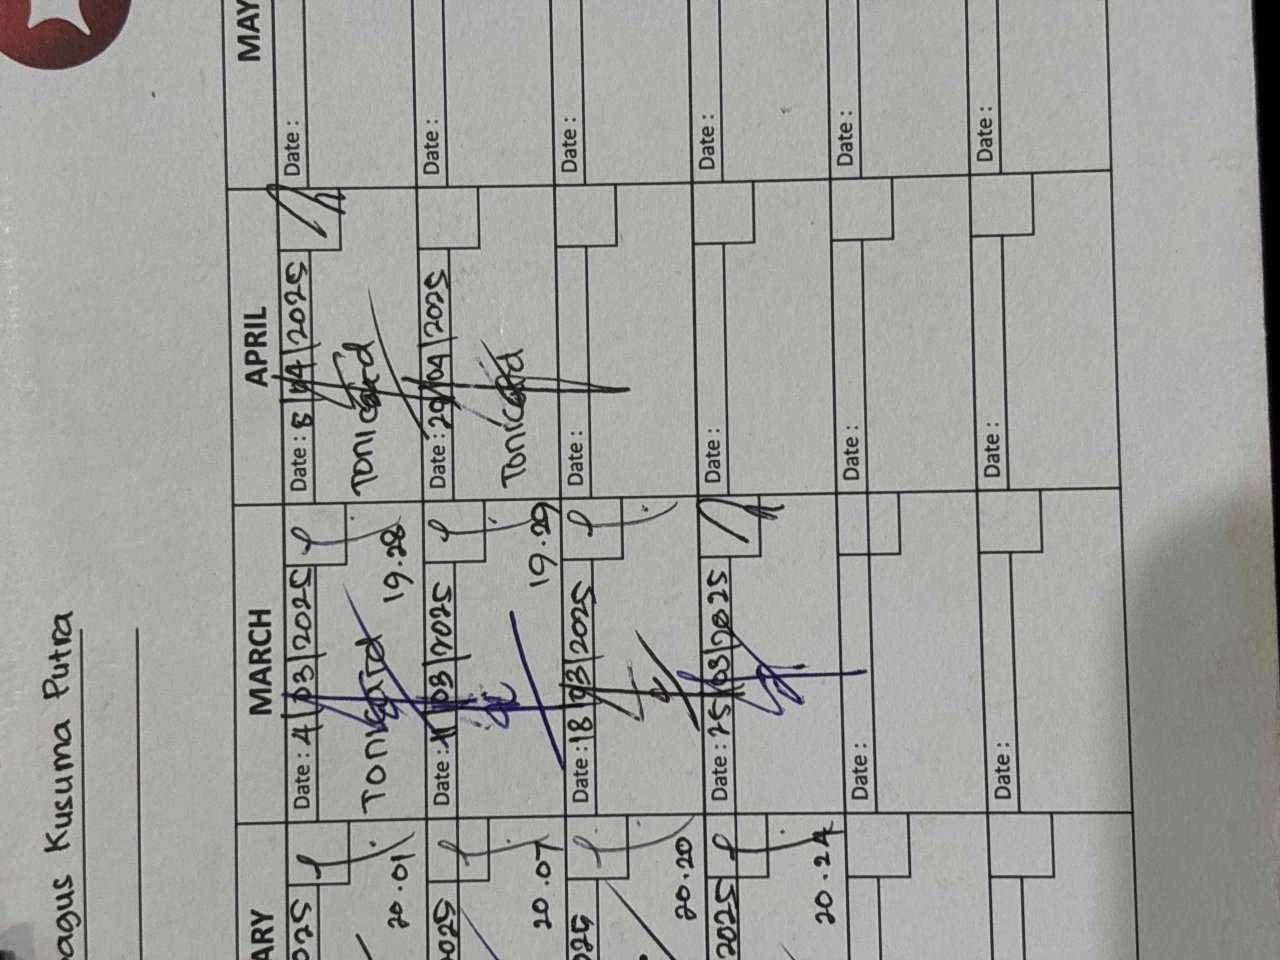 bagus Kusuma Putra
ARY
MARCH
APRIL
MAY
025
Date : 4/03/2025
Date : 8/04/2025
Date :
Tonicard
Tonicard
20.01
19.28
025
Date : 11/03/2025
Date : 29/04/2025
Date :
Tonicard
20.07
19.29
025
Date : 18/03/2025
Date :
Date :
20.20
2025
Date : 25/03/2025
Date :
Date :
20.24
Date :
Date :
Date :
Date :
Date :
Date :